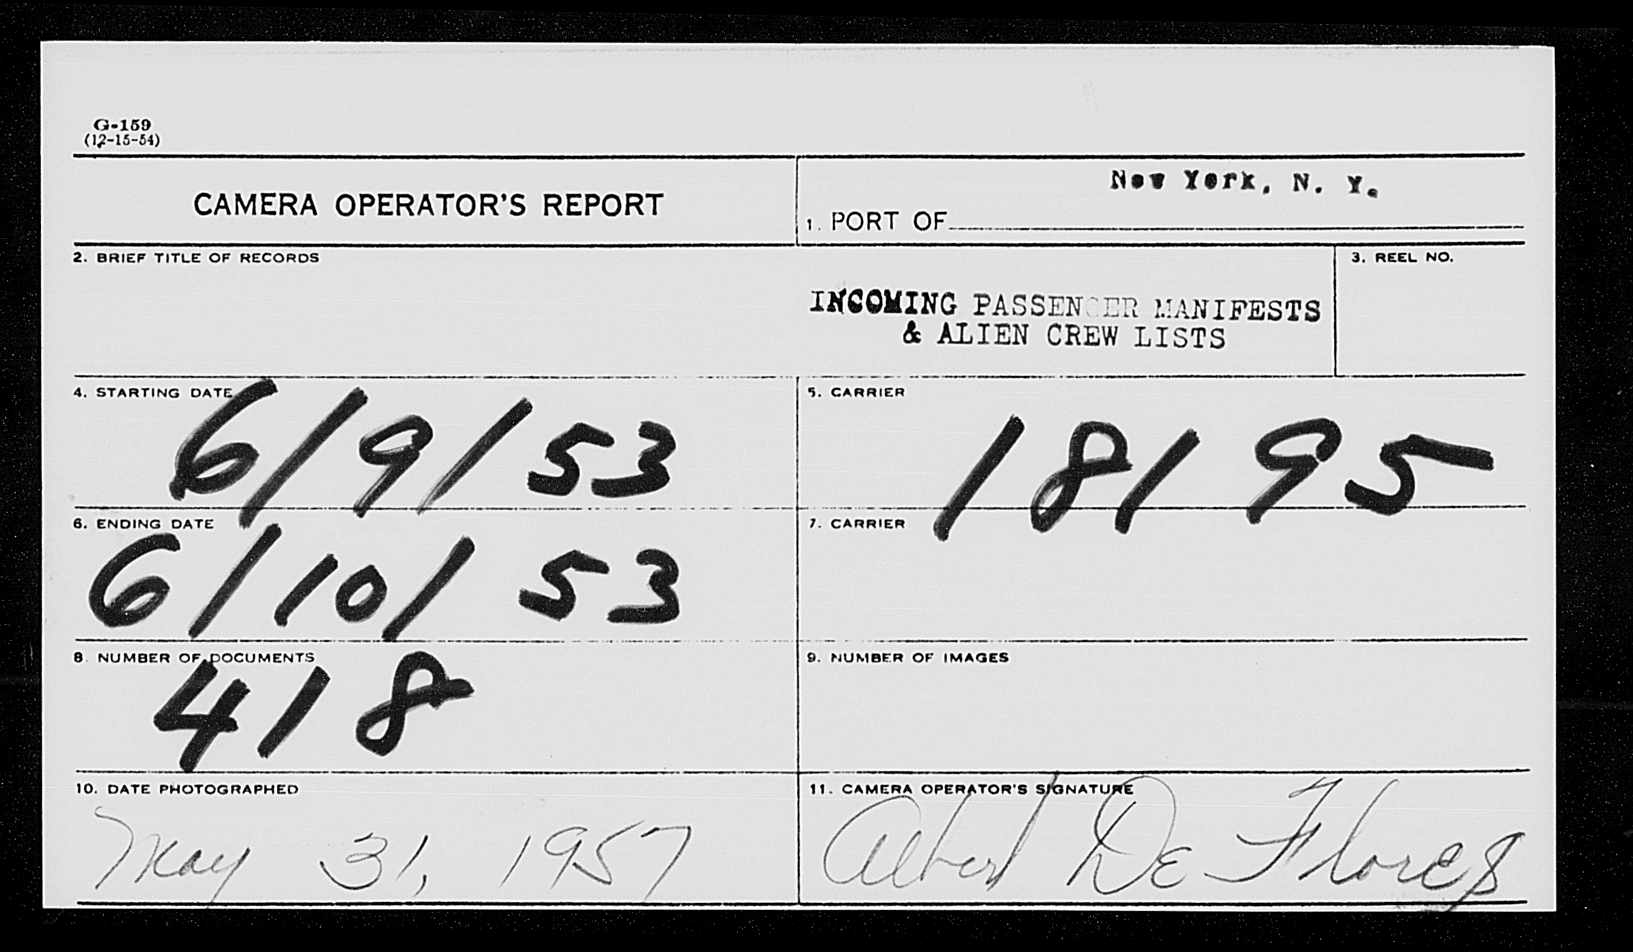 G-159
(12-15-54)
CAMERA OPERATOR'S REPORT
New York, N. Y.
1. PORT OF
2. BRIEF TITLE OF RECORDS
3. REEL NO.
INCOMING PASSENGER MANIFESTS
& ALIEN CREW LISTS
4. STARTING DATE
6/9/53
5. CARRIER
18195
6. ENDING DATE
6/10/53
7. CARRIER
8. NUMBER OF DOCUMENTS
418
9. NUMBER OF IMAGES
10. DATE PHOTOGRAPHED
May 31, 1957
11. CAMERA OPERATOR'S SIGNATURE
Albert De Flores